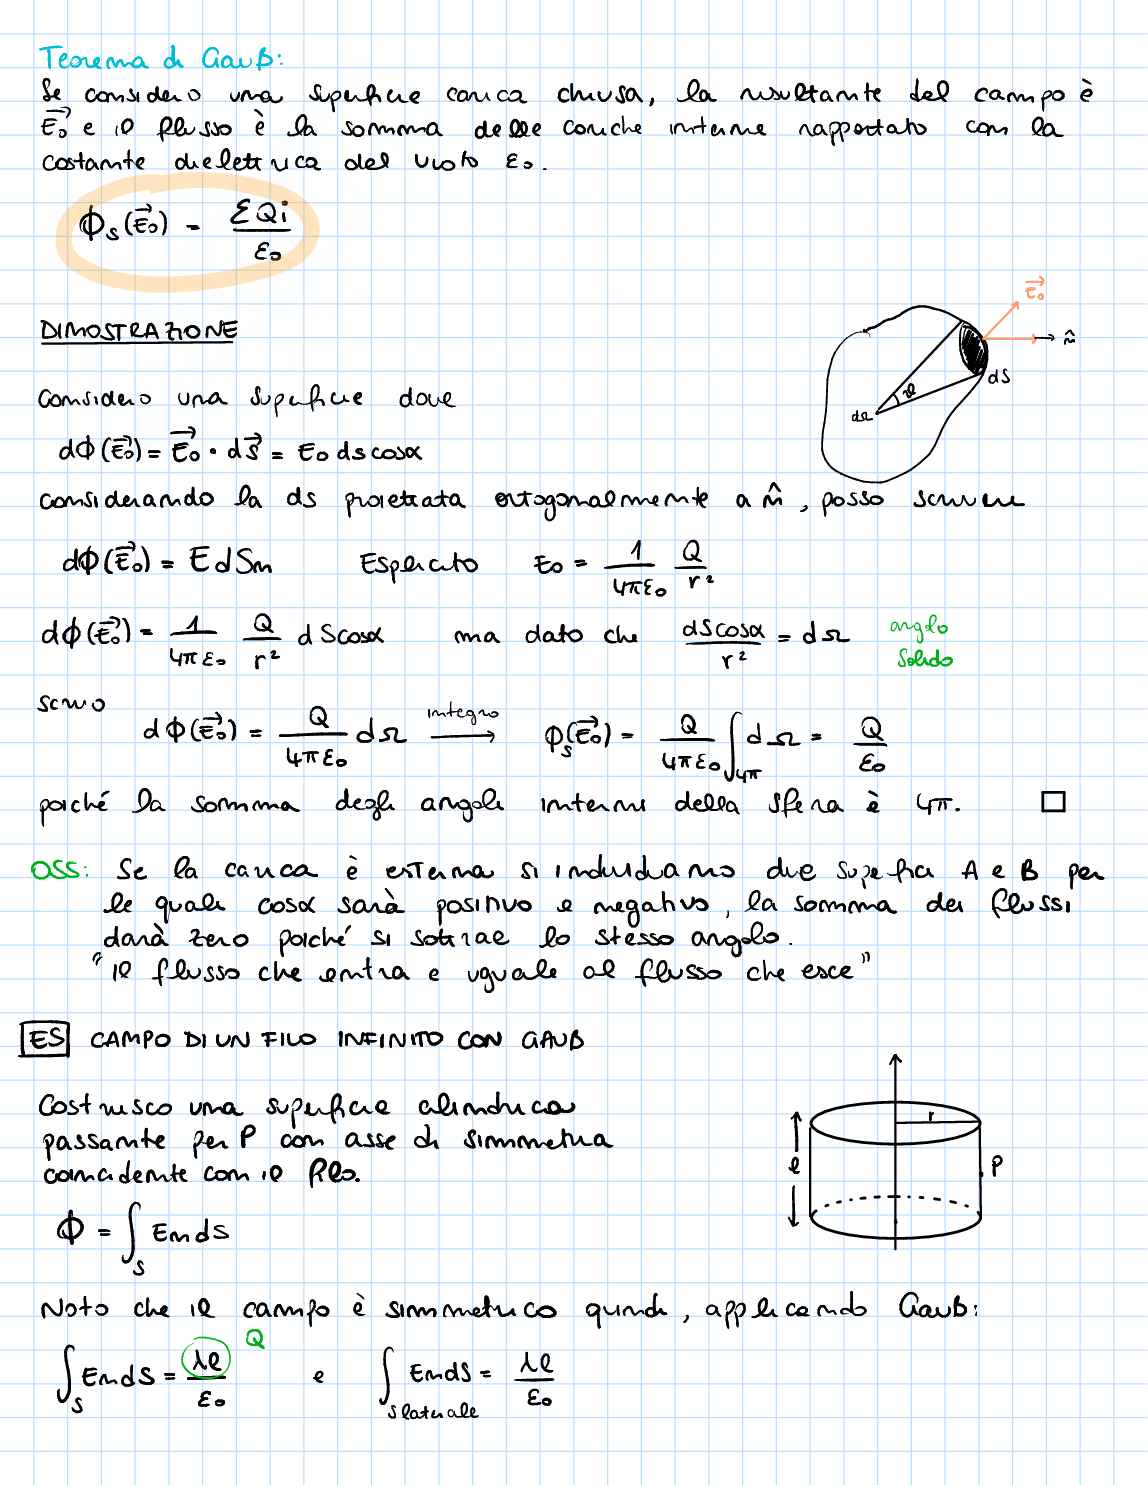 Teorema di Gauß:
Se considero una superficie carica chiusa, la risultante del campo è
E⃗₀ e il flusso è la somma delle cariche interne rapportato con la
costante dielettrica del vuoto ε₀.
Φₛ(E⃗₀) = ΣQi / ε₀
DIMOSTRAZIONE
E⃗₀
n̂
dS
dΩ
Considero una superficie dove
dΦ(E⃗₀) = E⃗₀ · dS⃗ = E₀ ds cosα
Considerando la ds proiettata ortogonalmente a n̂, posso scrivere
dΦ(E⃗₀) = E dSn Esplicito E₀ = 1/4πε₀ Q/r²
dΦ(E⃗₀) = 1/4πε₀ Q/r² dS cosα ma dato che dS cosα / r² = dΩ angolo
solido
scrivo
dΦ(E⃗₀) = Q/4πε₀ dΩ integro ⟶ Φₛ(E⃗₀) = Q/4πε₀ ∫4π dΩ = Q/ε₀
poiché la somma degli angoli interni della sfera è 4π. □
OSS: Se la carica è esterna si individuano due superfici A e B per
le quali cosα sarà positivo e negativo, la somma dei flussi
darà zero poiché si sottrae lo stesso angolo.
"il flusso che entra e uguale al flusso che esce"
ES CAMPO DI UN FILO INFINITO CON GAUß
Costruisco una superficie cilindrica
passante per P con asse di simmetria
coincidente con il filo.
r
l
P
Φ = ∫S En dS
Noto che il campo è simmetrico quindi, applicando Gauß:
Q
∫S En dS = λl/ε₀ e ∫S laterale En dS = λl/ε₀